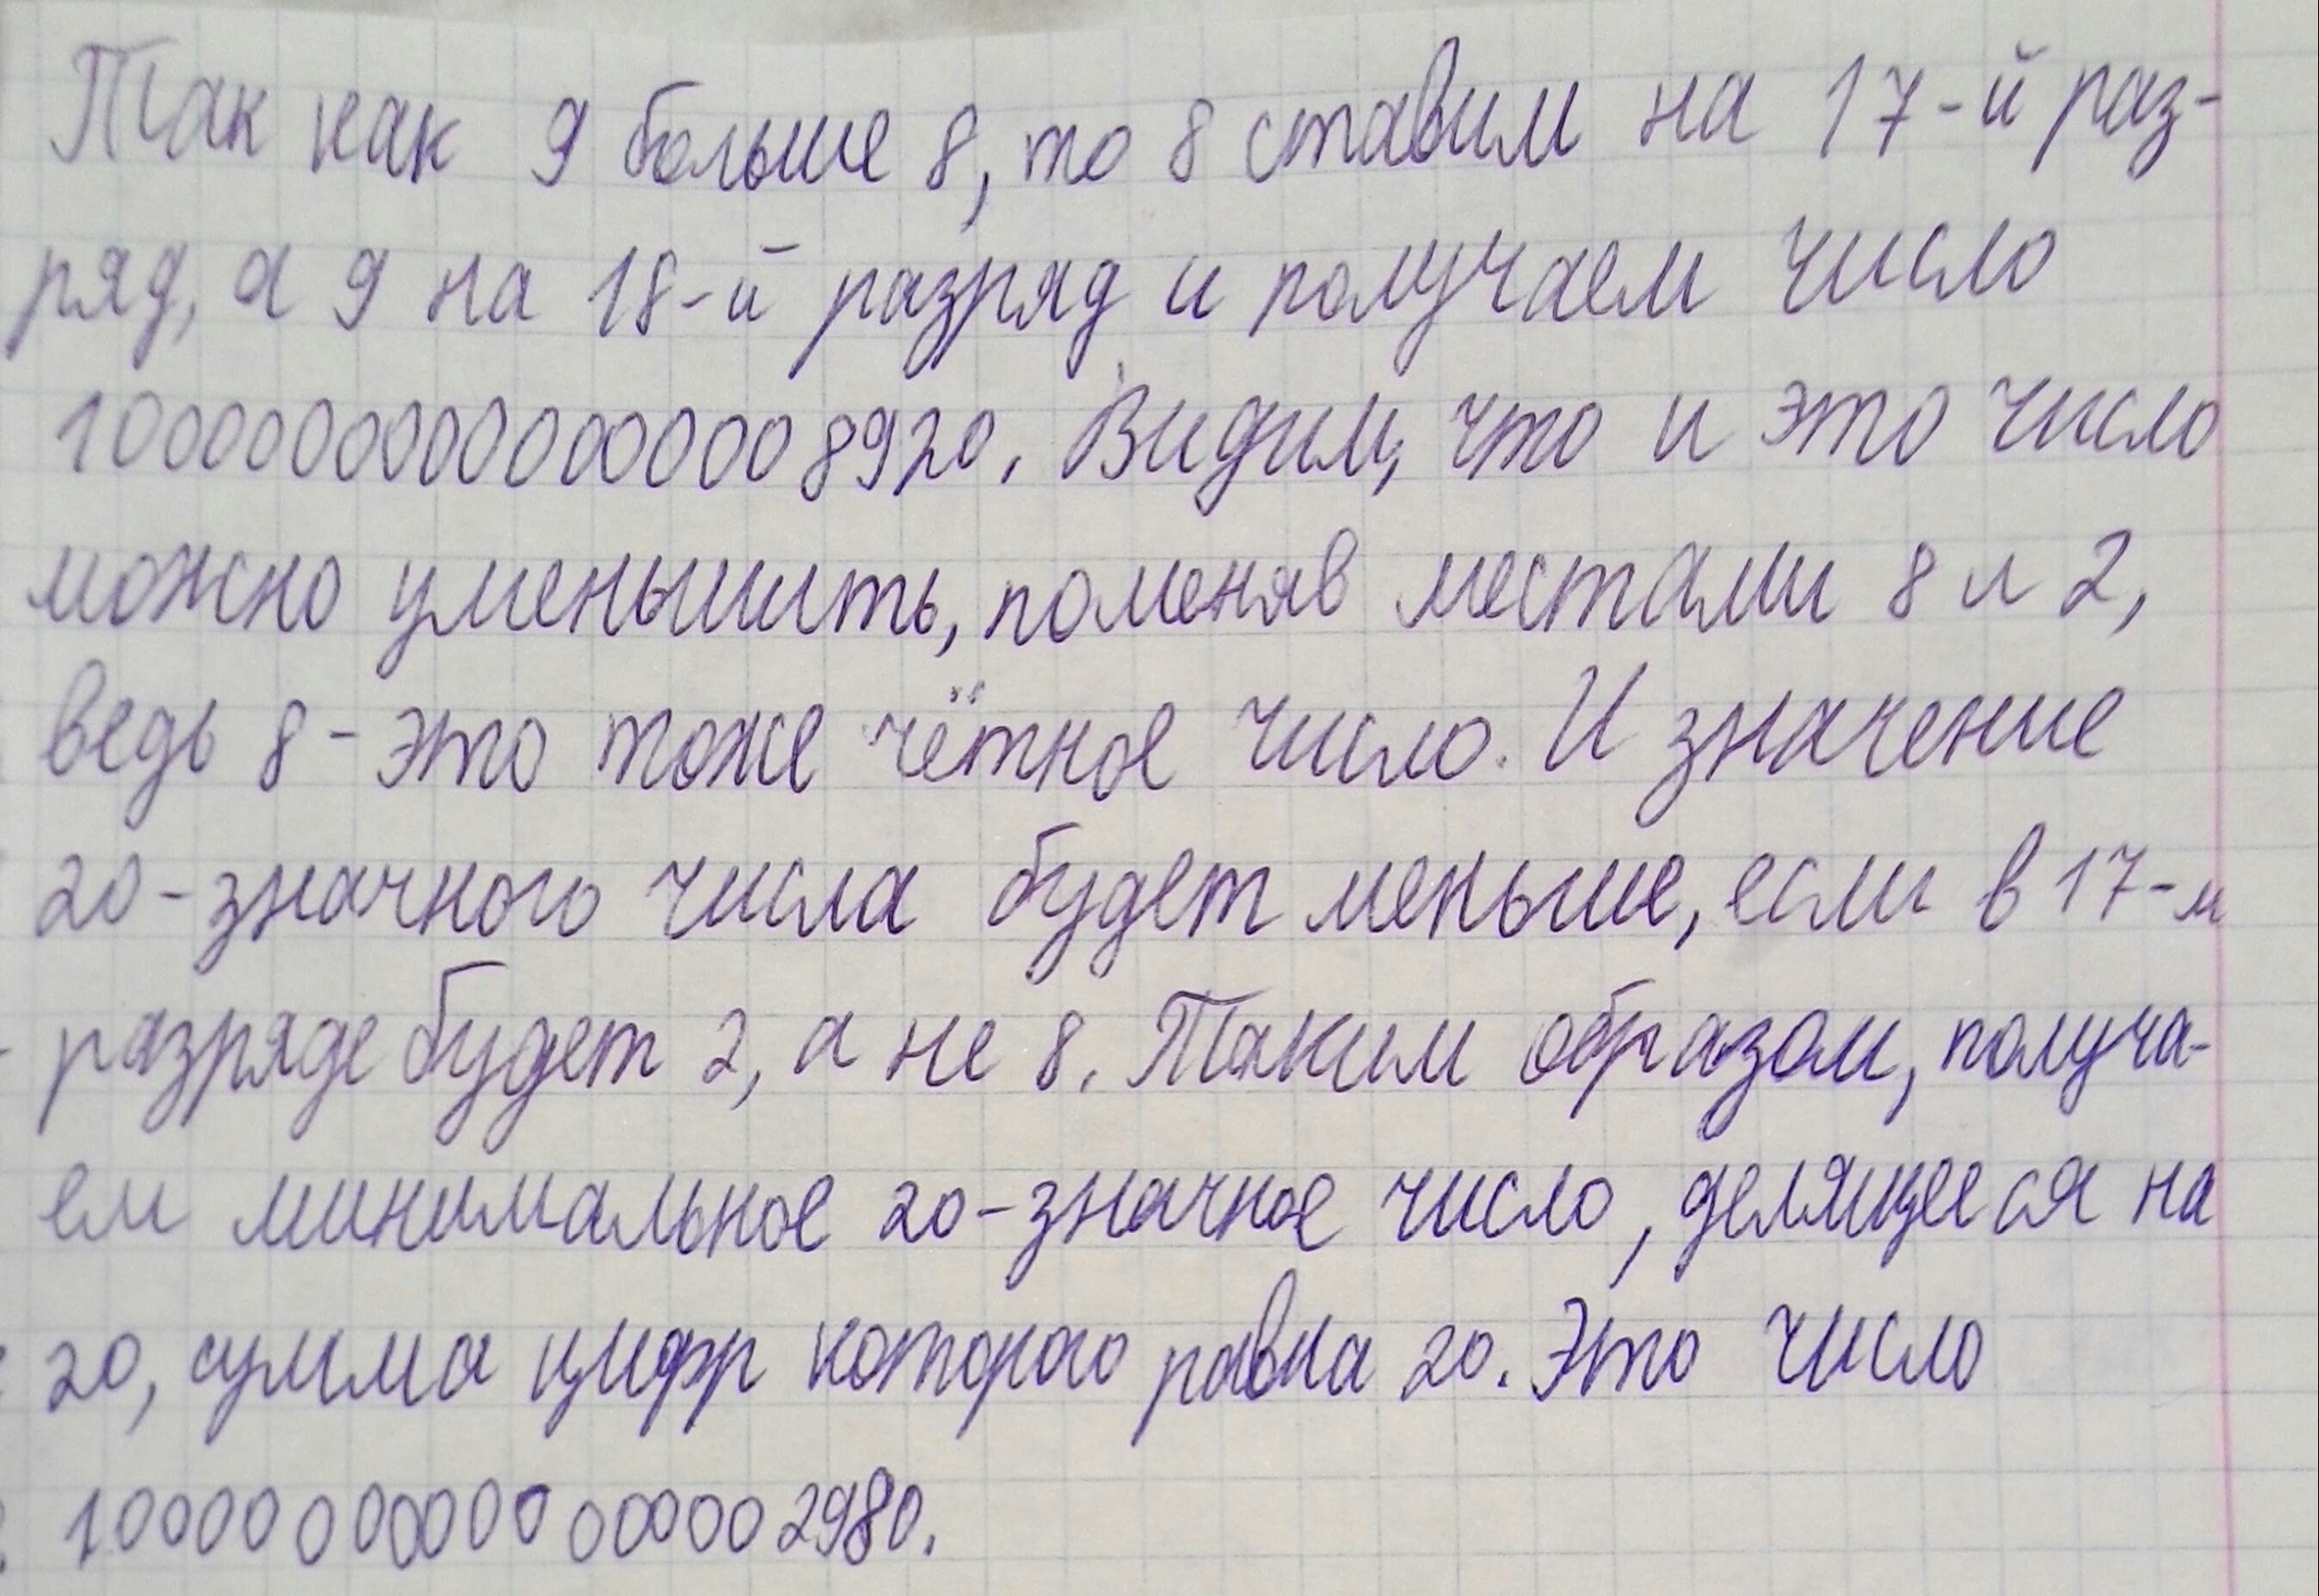 Так как 9 больше 8, то 8 ставим на 17-й раз-
ряд, а 9 на 18-й разряд и получаем число
10000000000000008920. Видим, что и это число
можно уменьшить, поменяв местами 8 и 2,
ведь 8 - это тоже чётное число. И значение
20-значного числа будет меньше, если в 17-м
разряде будет 2, а не 8. Таким образом, получа-
ем минимальное 20-значное число, делящееся на
20, сумма цифр которого равна 20. Это число
10000000000000002980.